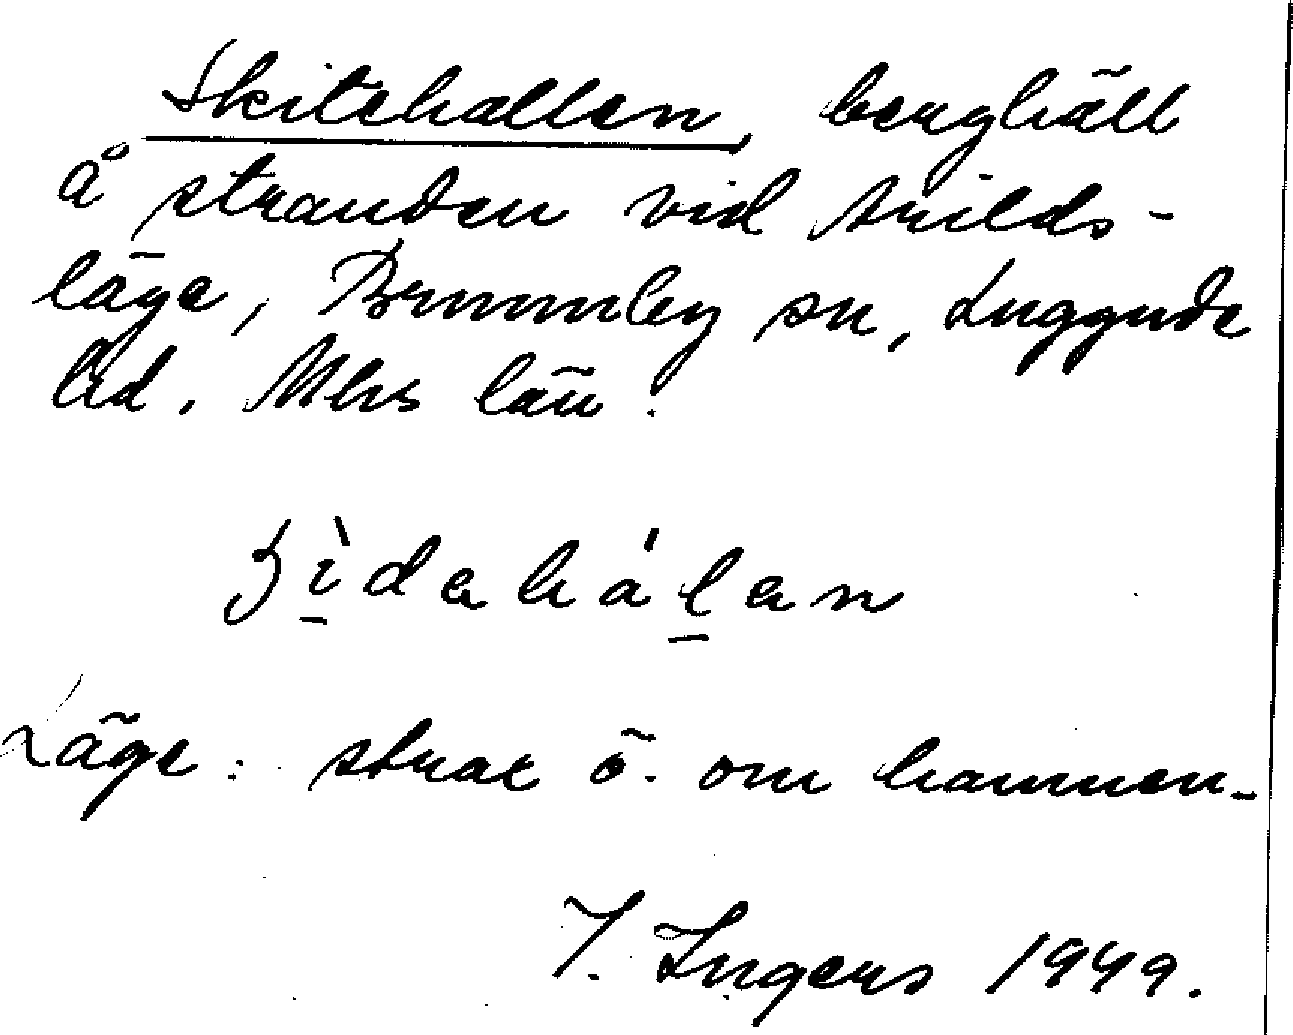 Skitehallen, berghäll
å stranden vid Arilds-
läge, Brunnby sn, Luggude
hd. Mhs län.
ʒìdehálen
Läge: strax ö. om hamnen.
I. Ingers 1949.